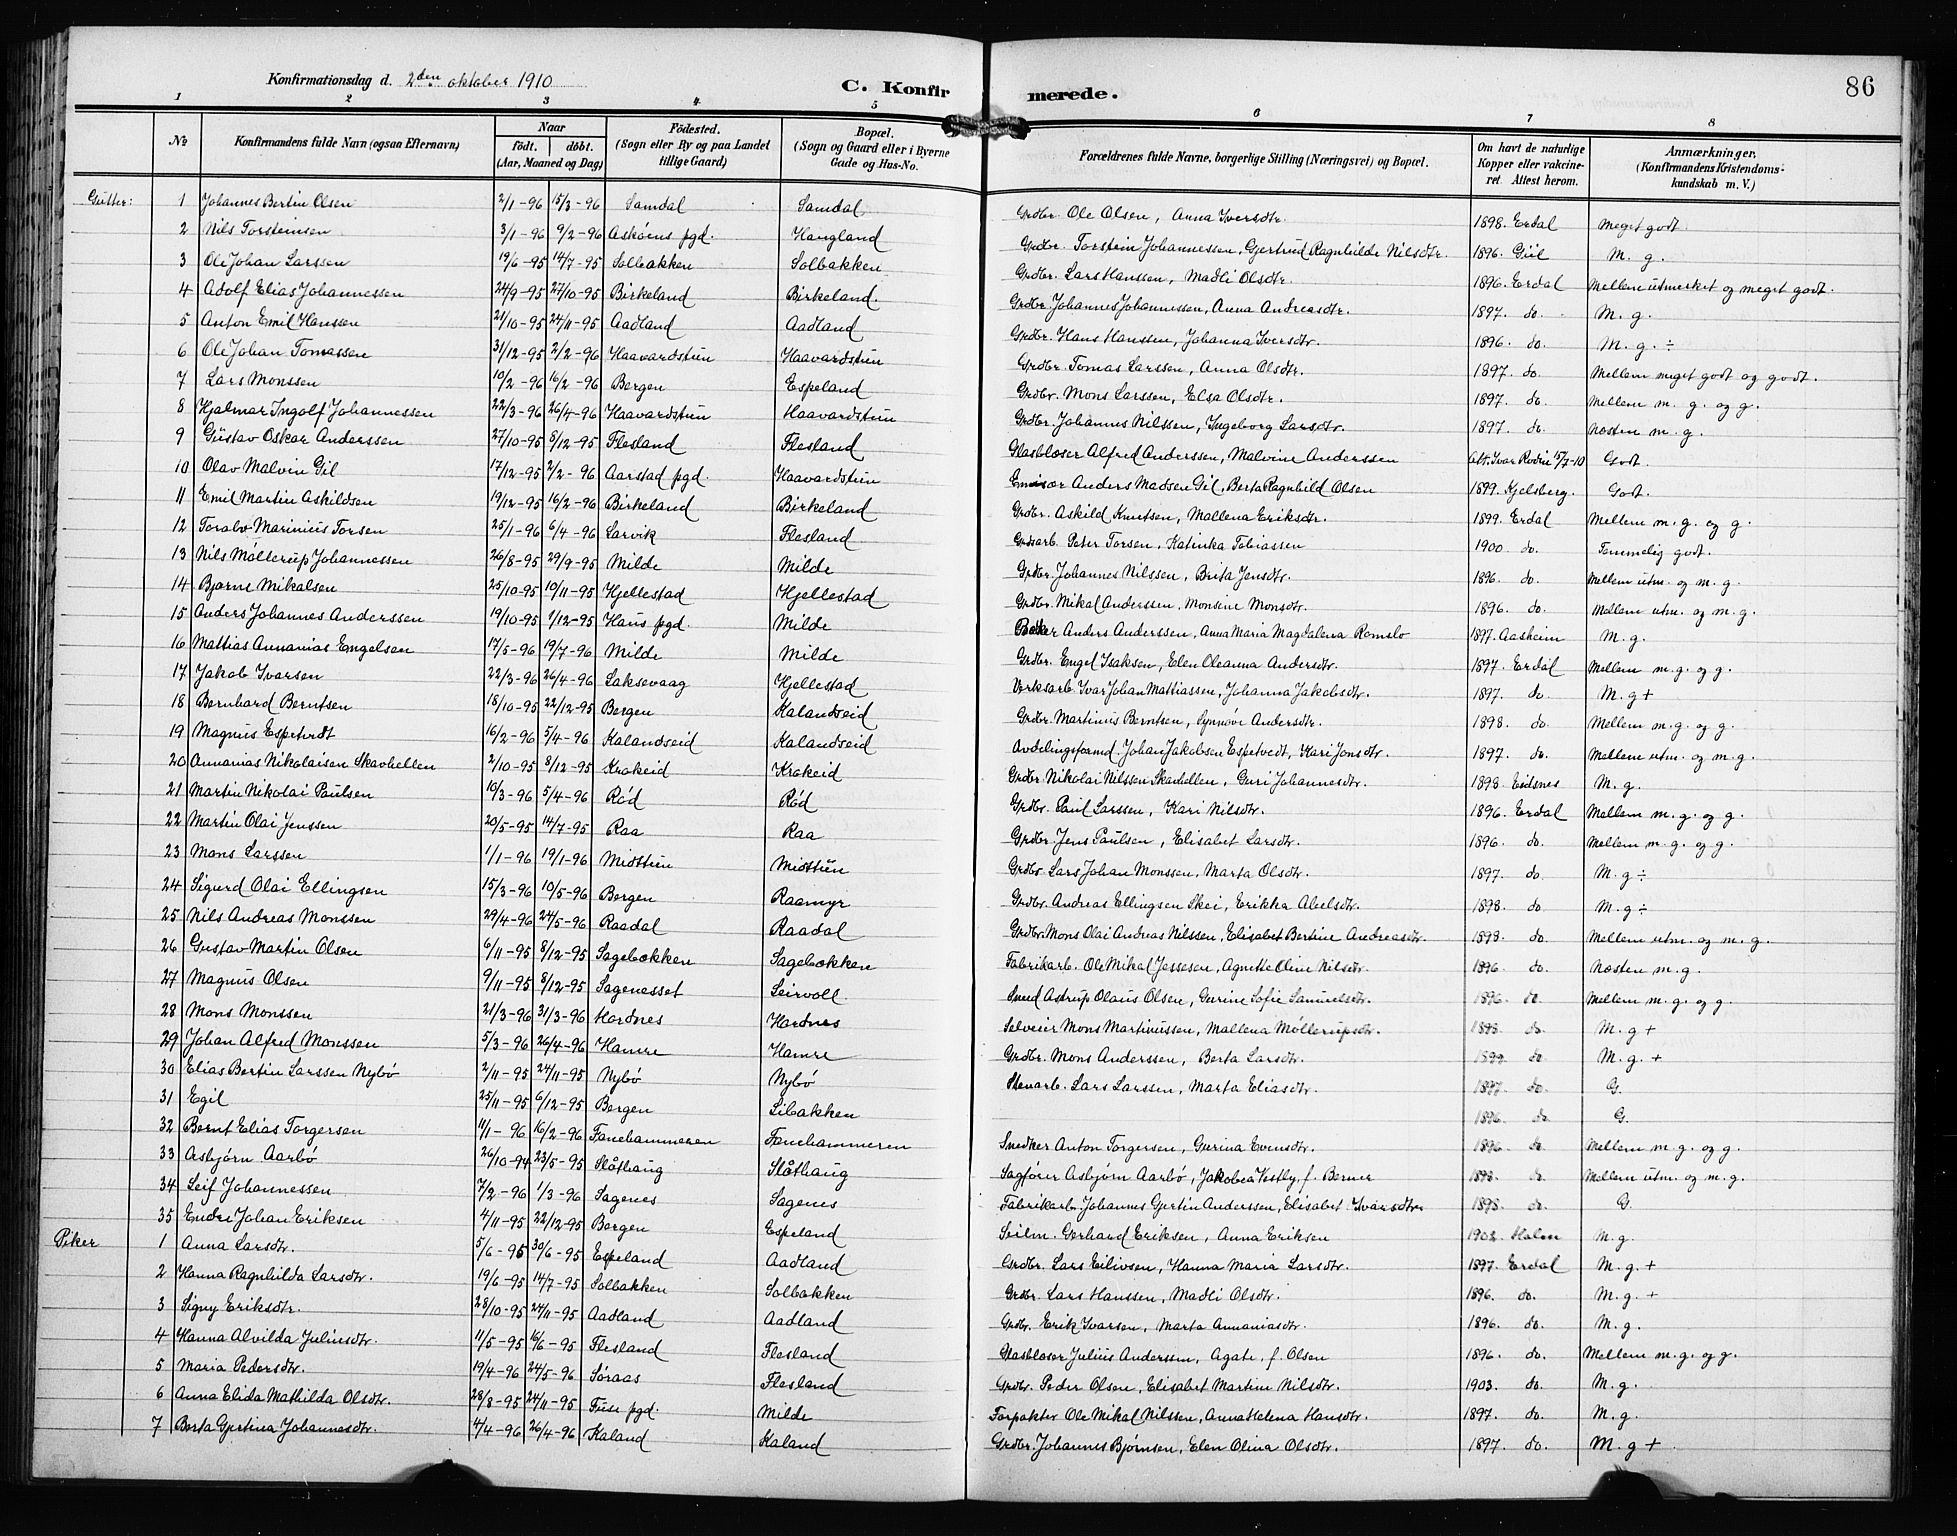 86
Konfirmationsdag d. 2den oktober 1910
C. Konfirmerede.
1 2 3 4 5 6 7 8
№
Konfirmandens fulde Navn (ogsaa Efternavn)
Naar
født. døbt.
(Aar, Maaned og Dag)
Födested.
(Sogn eller By og paa Landet tillige Gaard)
Bopæl.
(Sogn og Gaard eller i Byerne Gade og Hus-No.
Forældrenes fulde Navne, borgerlige Stilling (Næringsvei) og Bopæl.
Om havt de naturlige Kopper eller vakcineret. Attest herom.
Anmærkninger,
(Konfirmandens Kristendomskundskab m. V.)
Gutter: 1 Johannes Bertin Olsen 2/1-96 15/3-96 Samdal Samdal Grdbr. Ole Olsen, Anna Iversdtr. 1898. Erdal Meget godt
2 Nils Torsteinsen 3/1-96 9/2-96 Askøens pgd. Haugland Grdbr. Torstein Johannessen, Gjertrud Ragnhilde Nilsdtr. 1896. Giil M. g.
3 Ole Johan Larssen 19/6-95 14/7-95 Solbakken Solbakken Grdbr. Lars Hanssen, Madli Olsdtr. 1896. Erdal Mellem utmerket og meget godt.
4 Adolf Elias Johannessen 24/9-95 27/10-95 Birkeland Birkeland. Grdbr. Johannes Johannessen, Anna Andreasdtr. 1897. do. M. g.
5 Anton Emil Hanssen 21/10-95 24/11-95 Aadland Aadland Grdbr. Hans Hanssen, Johanna Iversdtr. 1896. do. M. g. ÷
6 Ole Johan Tomassen 31/12-95 2/2-96 Haavardstun Haavardstun Grdbr. Tomas Larssen, Anna Olsdtr. 1897. do Mellem meget godt og godt.
7 Lars Monssen 10/2-96 16/2-96 Bergen Espeland Grdbr. Mons Larssen, Elsa Olsdtr. 1897. do. Mellem m. g. og g.
8 Hjalmar Ingolf Johannessen 22/3-96 26/4-96 Haavardstun Haavardstun Grdbr. Johannes Nilssen, Ingeborg Larsdtr. 1897. do. Næsten m. g.
9 Gustav Oskar Anderssen 27/10-95 5/12-95 Flesland Flesland Glasblæser Alfred Anderssen, Malvine Anderssen Att. Ivar Rodin 15/7-10 Godt.
10 Olav Malvin Gil 17/12-95 2/2-96 Aarstad pgd. Haavardstun Anders Madsen Gil, Berta Ragnhild Olsen 1899. Kjelsberg. Godt.
11 Emil Martin Askildsen 19/12-95 16/2-96 Birkeland Birkeland Grdbr. Askild Knutsen, Mallena Eriksdtr. 1899. Erdal Mellem m. g. og g.
12 Toralv Marinius Torsen 25/1-96 6/4-96 Larvik Flesland Grdsarb. Peter Torsen, Katinka Tobiassen 1900. do. Temmelig godt.
13 Nils Møllerup Johannessen 26/8-95 29/9-95 Milde Milde Grdbr. Johannes Nilssen, Brita Jensdtr. 1896. do. Mellem utm. og m. g.
14 Bjarne Mikalsen 25/10-95 10/11-95 Hjellestad Hjellestad Grdbr. Mikal Anderssen, Monsine Monsdtr. 1896. do. Mellem utm. og m. g.
15 Anders Johannes Anderssen 19/10-95 1/12-95 Haus pgd. Milde Anders Anderssen, Anna Maria Magdalena Romslo 1897. Aasheim M. g.
16 Mattias Annanias Engelsen 17/5-96 19/7-96 Milde Milde Grdbr. Engel Isaksen, Elen Oleanna Andersdtr. 1897. Erdal Mellem m. g. og g.
17 Jakob Ivarsen 22/3-96 26/4-96 Laksevaag Hjellestad Verksarb. Ivar Johan Mattiassen, Johanna Jakobsdtr. 1897. do M. g +
18 Bernhard Berntsen 18/10-95 22/12-95 Bergen Kalandseid Grdbr. Martinius Berntsen, Synnøve Andersdtr. 1898. do. Mellem m. g. og g.
19 Magnus Espetvedt 16/2-96 5/4-96 Kalandseid Kalandseid Avdelingsformd. Johan Jakobsen Espetvedt, Kari Jonsdtr. 1897. do. Mellem utm. og m. g.
20 Annanias Nikolaisen Skavhellen 2/10-95 8/12-95 Krokeid Krokeid Grdbr. Nikolai Nilssen Skavhellen, Guri Johannesdtr. 1898 Eidsnes M. g.
21 Martin Nikolai Paulsen 19/3-96 5/4-96 Rød Rød Grdbr. Paul Larssen, Kari Nilsdtr. 1896. Erdal Mellem m. g. og g.
22 Martin Olai Jenssen 20/5-95 14/7-95 Raa Raa Grdbr. Jens Paulsen, Elisabet Larsdtr. 1896. do. Mellem m. g. og g.
23 Mons Larssen 1/1-96 19/1-96 Midttun Midttun Grdbr. Lars Johan Monssen, Marta Olsdtr. 1897. do. M. g ÷
24 Sigurd Olai Ellingsen 15/3-96 10/5-96 Bergen Raamyr Grdbr. Andreas Ellingsen Skei, Erikka Abelsdtr. 1898. do. M. g ÷
25 Nils Andreas Monssen 29/4-96 24/5-96 Raadal Raadal Grdbr. Mons Olai Andreas Nilssen, Elisabet Bertine Andreasdtr. 1898. do. Mellem utm. og m. g.
26 Gustav Martin Olsen 6/11-95 8/12-95 Sagebækken Sagebækken Fabrikarb. Ole Mikal Jessesen, Agnette Oline Nilsdtr. 1896. do. Næsten m. g.
27 Magnus Olsen 9/11-95 8/12-95 Sagenesset Seirvoll. Smed Astrup Olaus Olsen, Gurine Sofie Samuelsdtr. 1896. do. Mellem m. g. og g.
28 Mons Monssen 21/3-96 31/3-96 Hordnes Hordnes Selveier Mons Martinussen, Mallena Møllerupsdtr. 1898 do. M. g +
29 Johan Alfred Monssen 5/3-96 26/4-96 Hamre Hamre Grdbr. Mons Anderssen, Berta Larsdtr. do. M. g. +
30 Elias Bertin Larssen Nybø 2/11-95 24/11-95 Nybø Nybø Stenarb. Lars Larssen, Marta Eliasdtr. 1897. do. G.
31 Egil 25/11-95 6/12-95 Bergen Libakken 1896. do G.
32 Bernt Elias Torgersen 11/1-96 16/2-96 Fanehammeren Fanehammeren Snedker Anton Torgersen, Gurina Evensdtr. 1896. do. Mellem m. g. og g.
33 Asbjørn Aarbø 26/10-94 23/5-95 Slåthaug Slåthaug Sagfører Asbjørn Aarbø, Jakobea Vestby, f. Berner 1898. do. Mellem utm. og m. g.
34 Leif Johannessen 7/2-96 1/3-96 Sagenes Sagenes Fabrikarb. Johannes Gjertin Anderssen, Elisabet Ivarsdtr. 1898. do. G.
35 Endre Johan Eriksen 4/11-95 22/12-95 Bergen Espeland Seilm. Gerhard Eriksen, Anna Eriksen 1902. Holm M. g.
Piker 1 Anna Larsdtr. 5/6-95 30/6-95 Espeland Aadland Grdbr. Lars Eilivsen, Hanna Maria Larsdtr. 1897. Erdal M. g. +
2 Hanna Ragnhilda Larsdtr. 19/6-95 14/7-95 Solbakken Solbakken Grdbr. Lars Hanssen, Madli Olsdtr. 1896. do. M. g. +
3 Signy Eriksdtr. 28/10-95 24/11-95 Aadland Aadland Grdbr. Erik Ivarsen, Marta Annaniasdtr. 1896. do. M. g.
4 Hanna Alvilda Juliusdtr. 11/5-95 16/6-95 Flesland Flesland Glasblæser Julius Anderssen, Agate, f. Olsen 1896. do. Mellem m. g. og g.
5 Maria Pedersdtr. 19/4-96 24/5-96 Søraas Flesland Grdbr. Peder Olsen, Elisabet Martine Nilsdtr. 1903. do. M. g.
6 Anna Elida Mathilda Olsdtr. 28/8-95 24/11-95 Fuse pgd. Milde Forpakter Ole Mikal Nilssen, Anna Helena Hansdtr. 1897. do. M. g.
7 Berta Gjertina Johannesdtr. 4/4-96 26/4-96 Kaland Kaland Grdbr. Johannes Bjørnsen, Elen Olina Olsdtr. 1897. do. M. g +